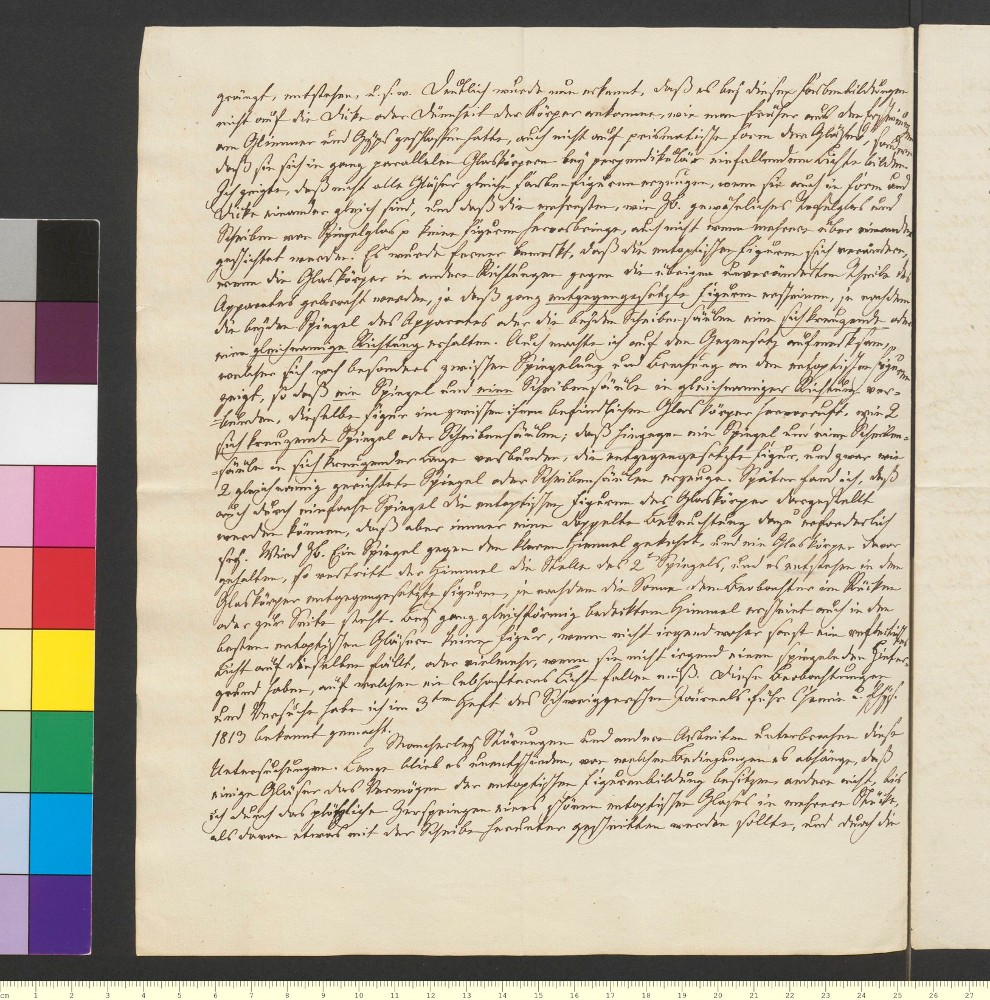 gränzt, entstehen, u. s. w. Deutlich wurde nun erkannt, daß es bey diesen Farbenbildungen
nicht auf die Dicke oder Dünnheit der Körper ankomme, wie man früher aus den
am Glimmer und Gyps geschlossen hatte, auch nicht auf prismatische Form der Gläser, sondern
daß sie sich in ganz parallelen Glaskörpern bey perpendikulär einfallendem Lichte bilden.
Ich zeigte, daß nicht alle Gläser gleiche Farbenfiguren erzeugen, wenn sie auch in Form und
Dicke einander gleich sind, und daß die mehresten, wie zb. gewöhnliches Tafelglas und
Scheiben von Spiegelglas keine Figuren hervorbringe, auch nicht wenn mehrere über einander
geschichtet werden. Es wurde ferner bemerkt, daß die entoptischen Figuren sich verändern,
wenn die Glaskörper in andere Richtungen gegen die übrigen unveränderten Theile des
Apparates gebracht werden, ja daß ganz entgegengesetzte Figuren erscheinen, je nachdem
die beyden Spiegel des Apparates oder die beyden Scheibensäulen eine sich kreuzende oder
eine gleichnamige Richtung erhalten. Auch machte ich auf den Gegensatz aufmerksam,
welcher sich noch besonders zwischen Spiegelung und Brechung an den entoptischen Figuren
zeigt, so daß ein Spiegel und eine Scheibensäule in gleichnamiger Richtung ver-
bunden, dieselbe Figur im zwischen ihnen befindlichen Glaskörper hervorruft, wie 2
sich kreuzende Spiegel oder Scheibensäulen; daß hingegen ein Spiegel und eine Scheiben-
säule in sich kreuzender Lage verbunden, die entgegengesetzte Figur, und zwar wie
2 gleichnamig gerichtete Spiegel oder Scheibensäulen erzeuge. Später fand ich, daß
auch durch einfache Spiegel die entoptischen Figuren des Glaskörper dargestellt
werden können, daß aber immer eine doppelte Beleuchtung dazu erforderlich
sey. Wird zb. Ein Spiegel gegen den klaren Himmel gekehrt, und ein Glaskörper davor
gehalten, so vertritt der Himmel die Stelle des 2t Spiegels, und es entstehen in den
Glaskörper entgegengesetzte Figuren, je nachdem die Sonne dem Beobachter im Rücken
oder zur Seite steht. Bey ganz gleichförmig bedecktem Himmel erscheint auch in den
besten entoptischen Gläsern keine Figur, wenn nicht irgend woher sonst ein
Licht auf dieselben fällt, oder vielmehr, wenn sie nicht irgend einen spiegelnden Hinter-
grund haben, auf welchen ein lebhafteres Licht fallen muß. Diese Beobachtungen
und Versuche habe ich im 3ten Heft des Schweiggerschen Journals für Chemie u. Phys.
1813 bekannt gemacht.
Mancherley Störungen und andere Arbeiten unterbrachen diese
Untersuchungen. Lange blieb es unentschieden, von welchen Bedingungen es abhänge, daß
einige Gläser das Vermögen der entoptischen Figurenbildung besitzen andere nicht, bis
ich durch das plötzliche Zerspringen eines schönen entoptischen Glases in mehrere Stücke,
als davon etwas mit der Scheibe herunter geschnitten werden sollte, und durch die